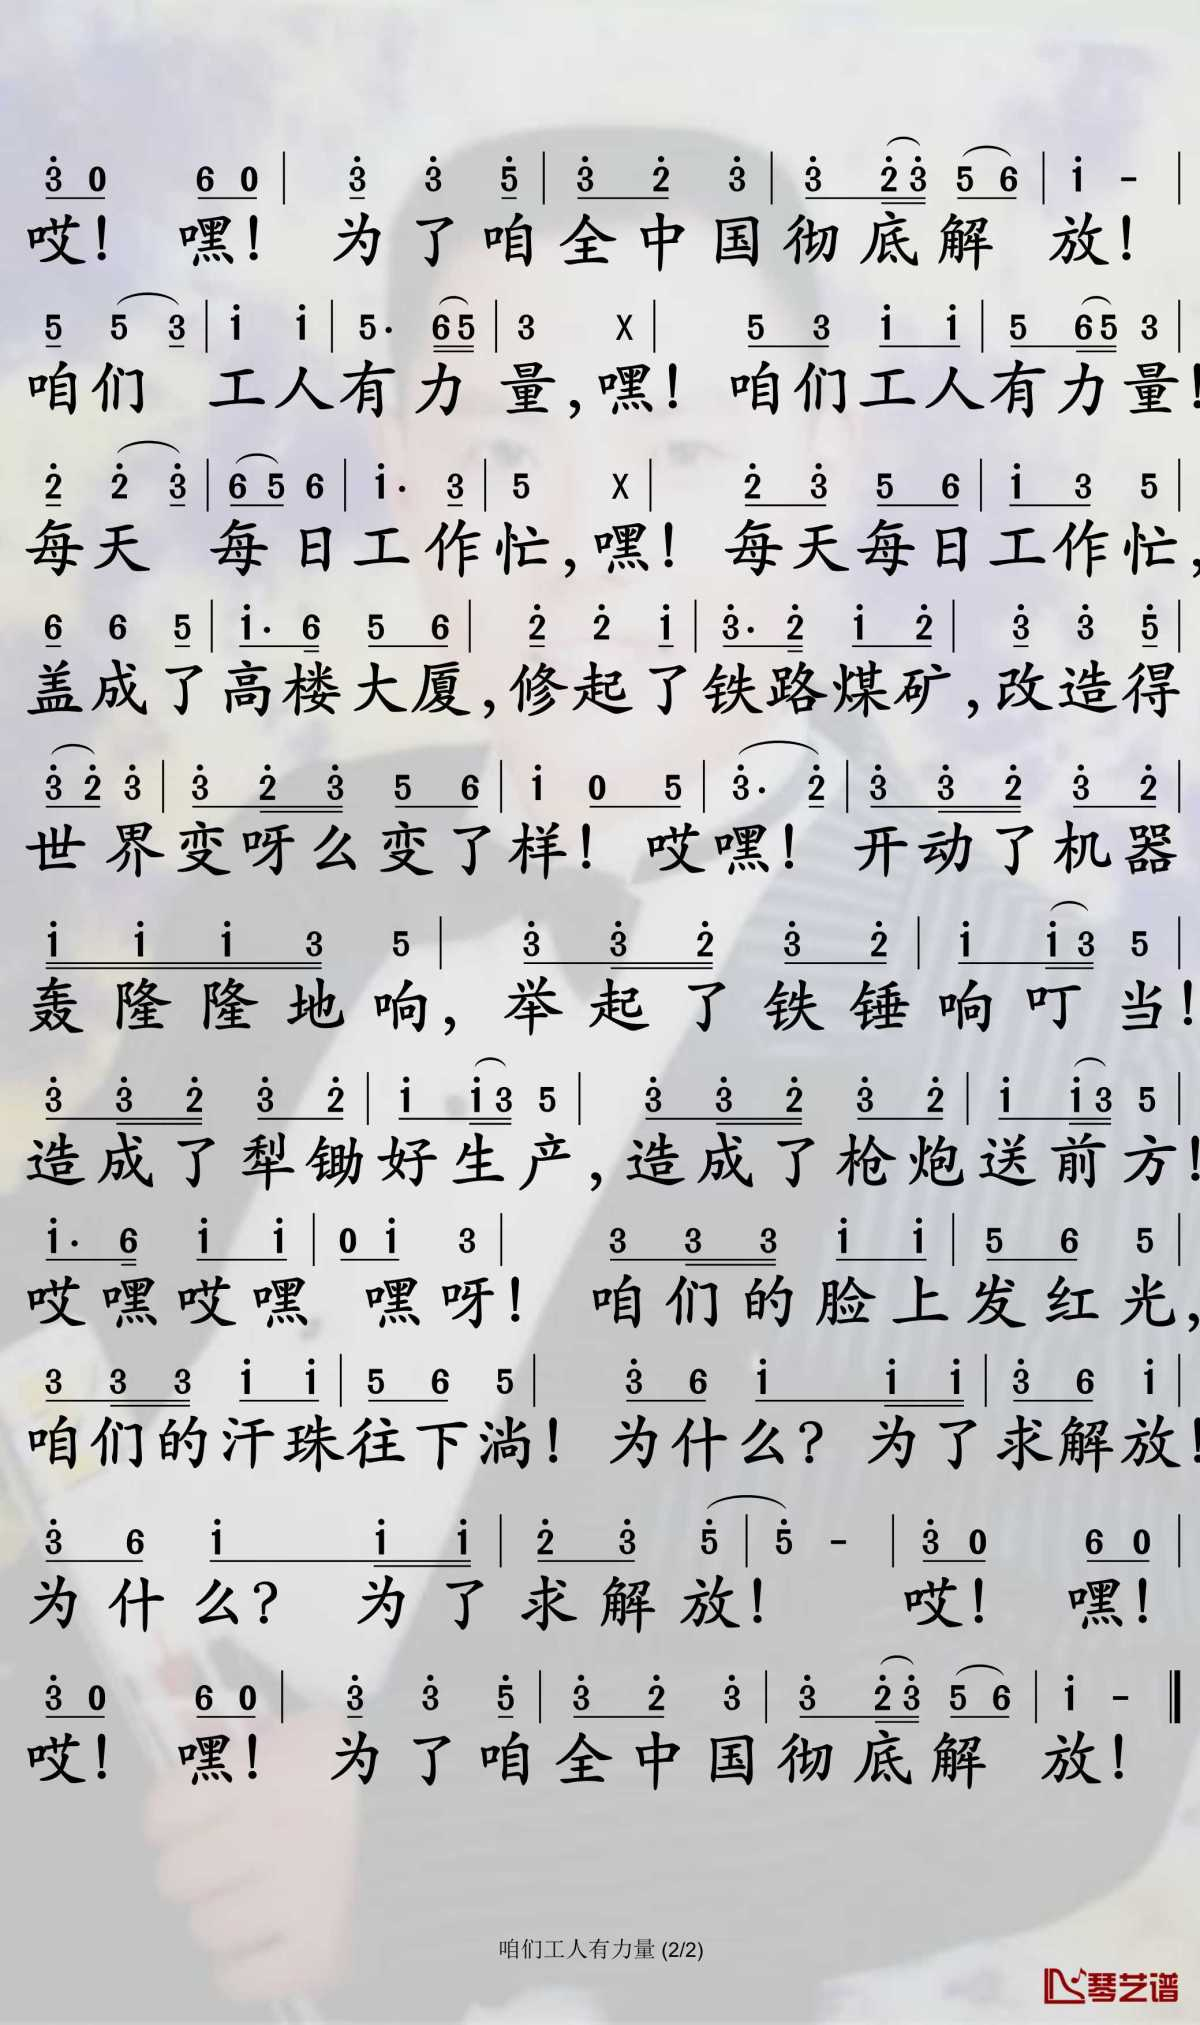 3̇ 0 6 0 | 3̇ 3̇ 5̇ | 3̇ 2̇ 3̇ | 3̇ 2̇ 3̇ 5 6 | 1̇ - |
哎! 嘿! 为了咱全中国彻底解 放!
5 5 3 | 1̇ 1̇ | 5· 6 5 | 3 X | 5 3 1̇ 1̇ | 5 6 5 3 |
咱们 工人有力量,嘿! 咱们工人有力量!
2̇ 2̇ 3̇ | 6 5 6 | 1̇· 3 | 5 X | 2̇ 3̇ 5 6 | 1̇ 3 5 |
每天 每日工作忙,嘿! 每天每日工作忙,
6 6 5 | 1̇· 6 5 6 | 2̇ 2̇ 1̇ | 3̇· 2̇ 1̇ 2̇ | 3̇ 3̇ 5̇ |
盖成了高楼大厦,修起了铁路煤矿,改造得
3̇ 2̇ 3̇ | 3̇ 2̇ 3̇ 5 6 | 1̇ 0 5 | 3̇· 2̇ | 3̇ 3̇ 2̇ 3̇ 2̇ |
世界变呀么变了样! 哎嘿! 开动了机器
1̇ 1̇ 1̇ 3 5 | 3̇ 3̇ 2̇ 3̇ 2̇ | 1̇ 1̇ 3 5 |
轰隆隆地响, 举起了铁锤响叮当!
3̇ 3̇ 2̇ 3̇ 2̇ | 1̇ 1̇ 3 5 | 3̇ 3̇ 2̇ 3̇ 2̇ | 1̇ 1̇ 3 5 |
造成了犁锄好生产,造成了枪炮送前方!
1̇· 6 1̇ 1̇ | 0 1̇ 3 | 3 3 3 1̇ 1̇ | 5 6 5 |
哎嘿哎嘿 嘿呀! 咱们的脸上发红光,
3 3 3 1̇ 1̇ | 5 6 5 | 3̇ 6 1̇ 1̇ 1̇ | 3̇ 6 1̇ |
咱们的汗珠往下淌! 为什么? 为了求解放!
3̇ 6 1̇ 1̇ 1̇ | 2̇ 3̇ 5̇ | 5̇ - | 3̇ 0 6 0 |
为什么? 为了求解放! 哎! 嘿!
3̇ 0 6 0 | 3̇ 3̇ 5̇ | 3̇ 2̇ 3̇ | 3̇ 2̇ 3̇ 5 6 | 1̇ - ‖
哎! 嘿! 为了咱全中国彻底解 放!
咱们工人有力量 (2/2)
琴艺谱